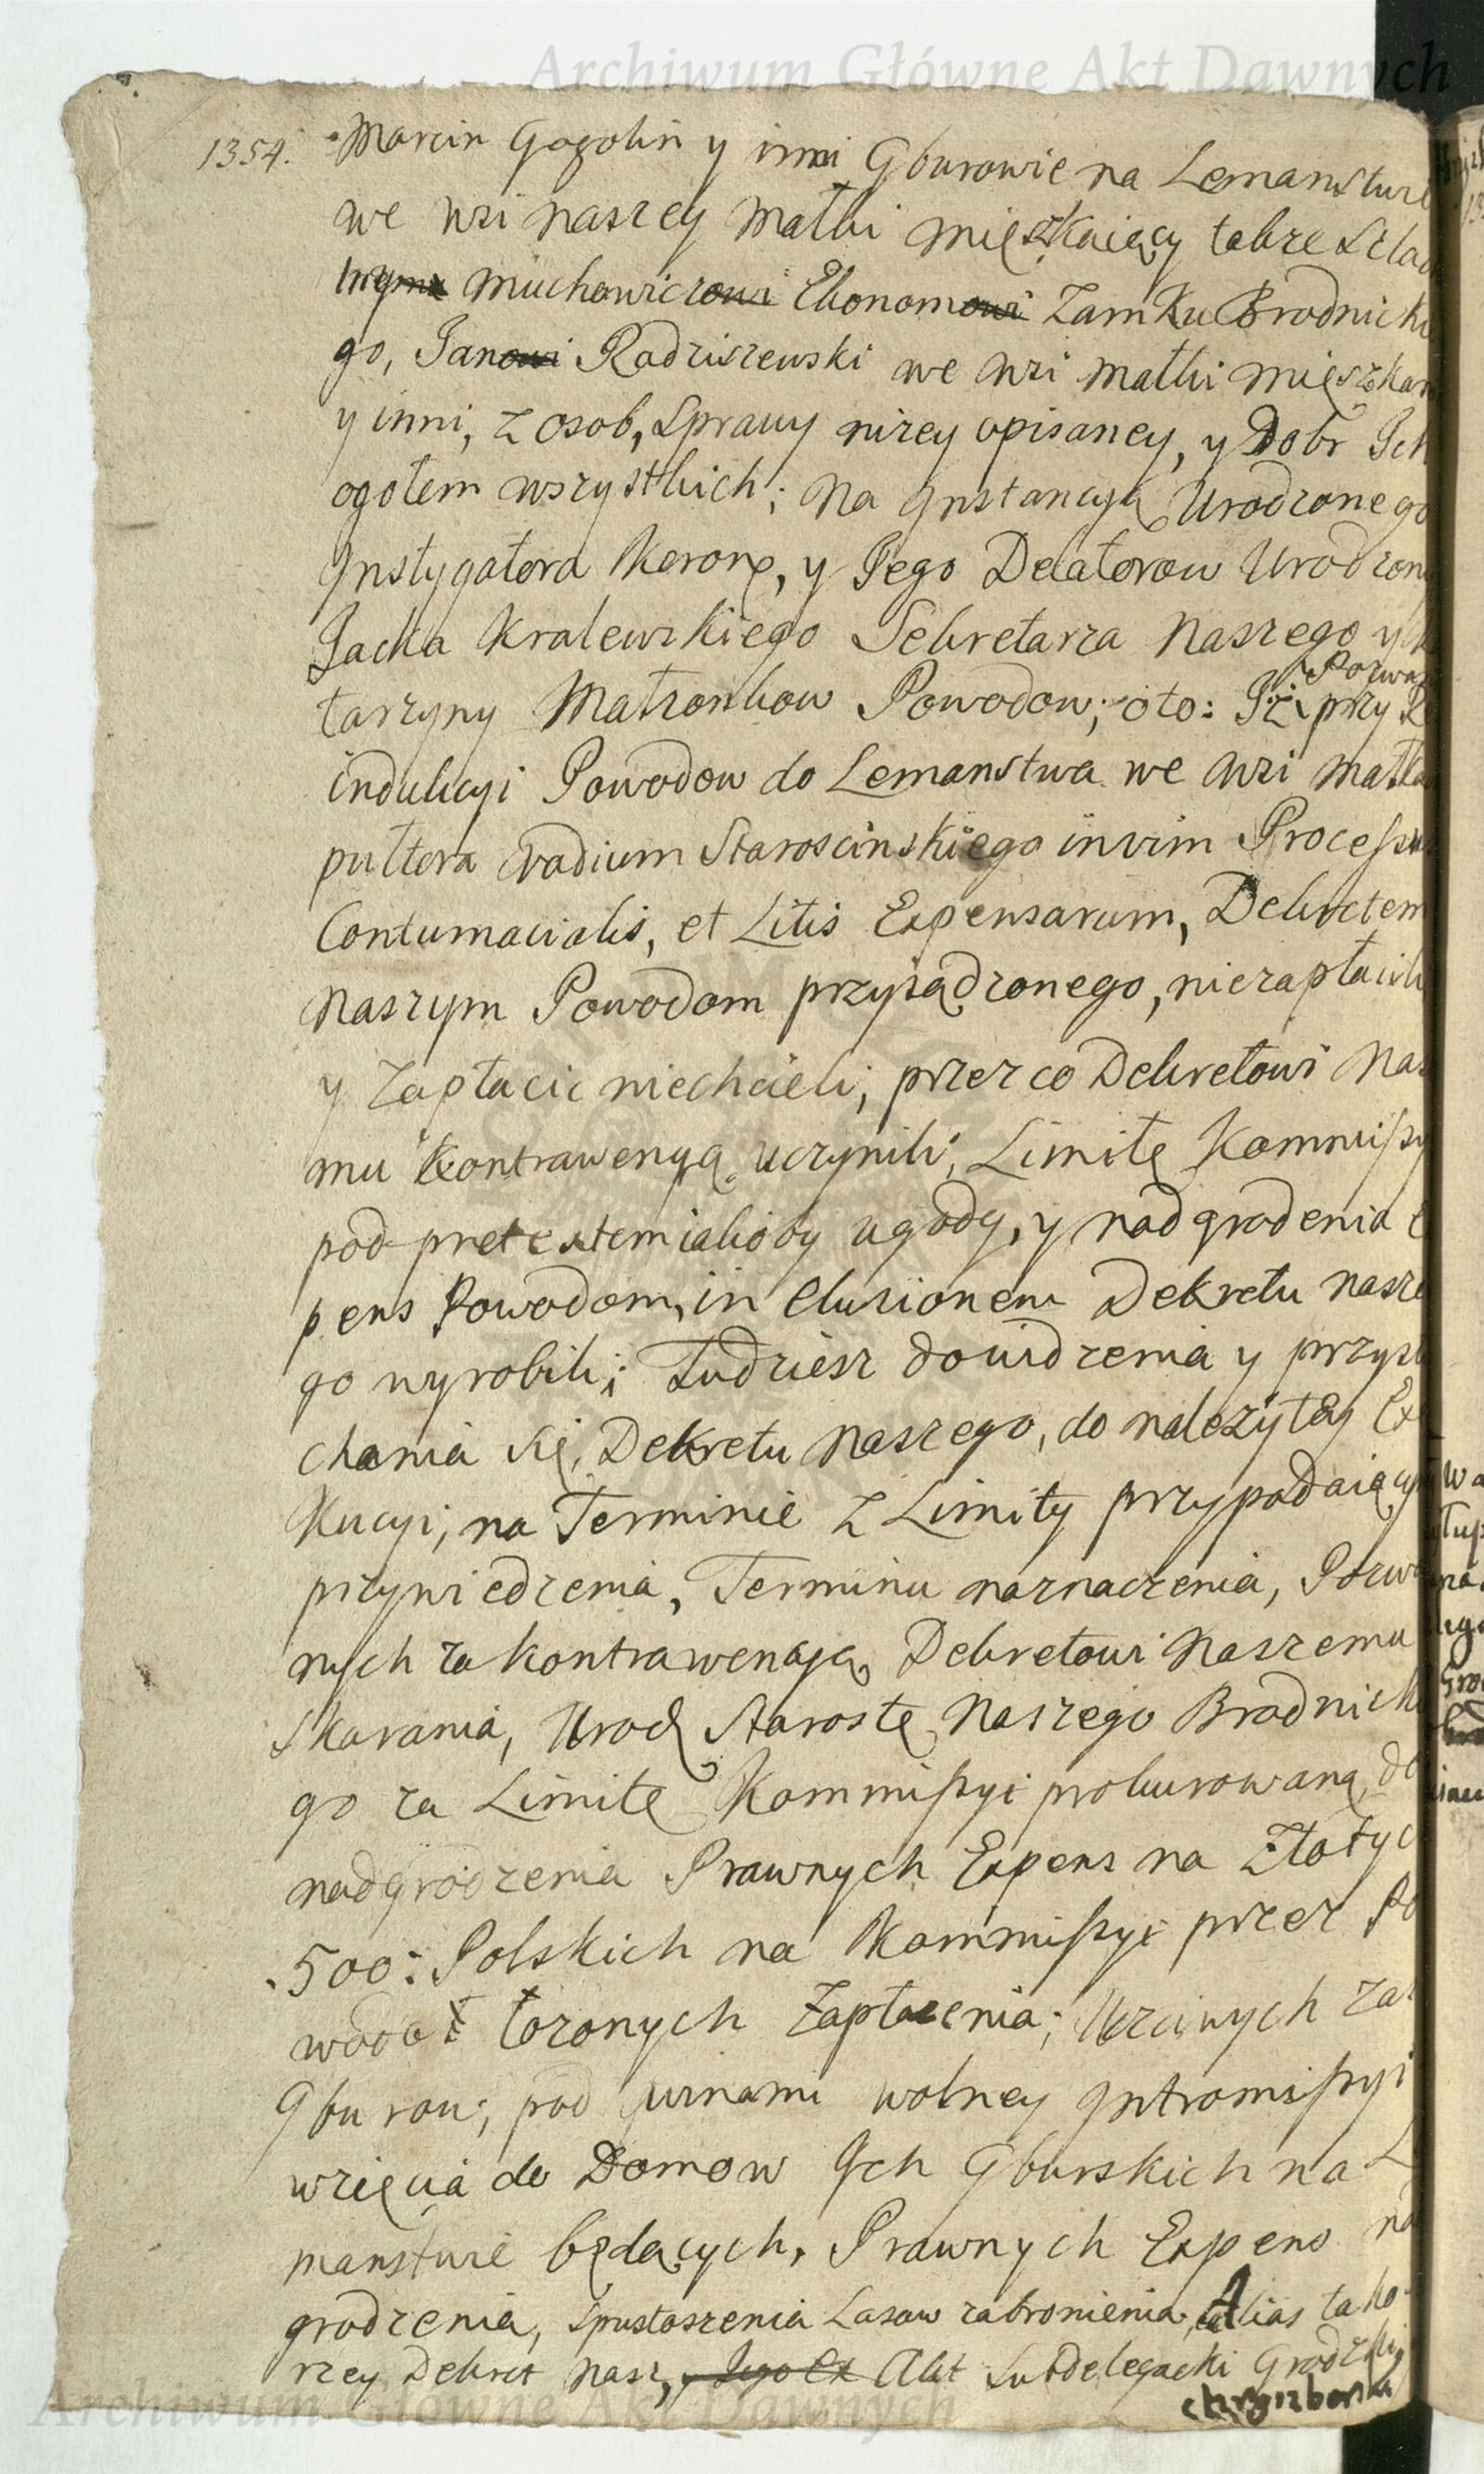 Archiwum Główne Akt Dawnych
1354. Marcin Gogolin y inni Gburowie na Lemanstwie
we wsi naszey Małki mięszkaiący także Szlach
Muchowiczowi Ekonomowi Zamku Brodnickie
go, Janowi Radziszewski we wsi Małki mięszkan
y inni, z osob, sprawy niżey opisaney, y Dobr Ich
ogołem wszystkich; na Jnstancyą Urodzonego
Jnstygatora Koronę, y Jego Delatorow Urodzony
Jacka Kralewskiego Sekretarza Naszego y
tarzyny Małżonkow Powodow; oto: Iż przy
Pozwa
indukcyi Powodow do Lemanstwa we wsi Małka
pułtora Vadium Staroscinskiego in vim Processus
Contumacialis, et Litis Expensarum, Dekretem
Naszym Powodom przysądzonego, niezapłacili
y Zapłacic niechcieli; przez co Dekretowi Nas
mu kontrawenyą uczynili, Limitę Kommissy
pod pretextem iakoby ugody, y nadgrodenia e
pens Powodom, in Elusionem Dekretu nasze
go wyrobili; Tudziesz do widzenia y przysł
chania się, Dekretu Naszego, do należytey Ex
Kucyi, na Terminie z Limity przypadaiący
przywiedzenia, Terminu naznaczenia, Pozwa
nych za kontrawencyą Dekretowi Naszemu
skarania, Urod Starostę Naszego Brodnicki
go za Limitę Kommissyi prokurowaną, do
nadgrodzenia Prawnych Expens na Złotyc
500: Polskich na Kommissyi przez Po
wodo łożonych Zapłacenia;
Gburow; pod winami wolney Jntromissyi
wzięcia do Domow Ich Gburskich na L
manstwie będących, Prawnych Expens na
grodzenia, spustoszenia Lasow zabronienia, Alias tako
rzey Dekret Nasz, Jego Ex Akt Subdelegacki Grodzki
Archiwum Główne Akt Dawnych